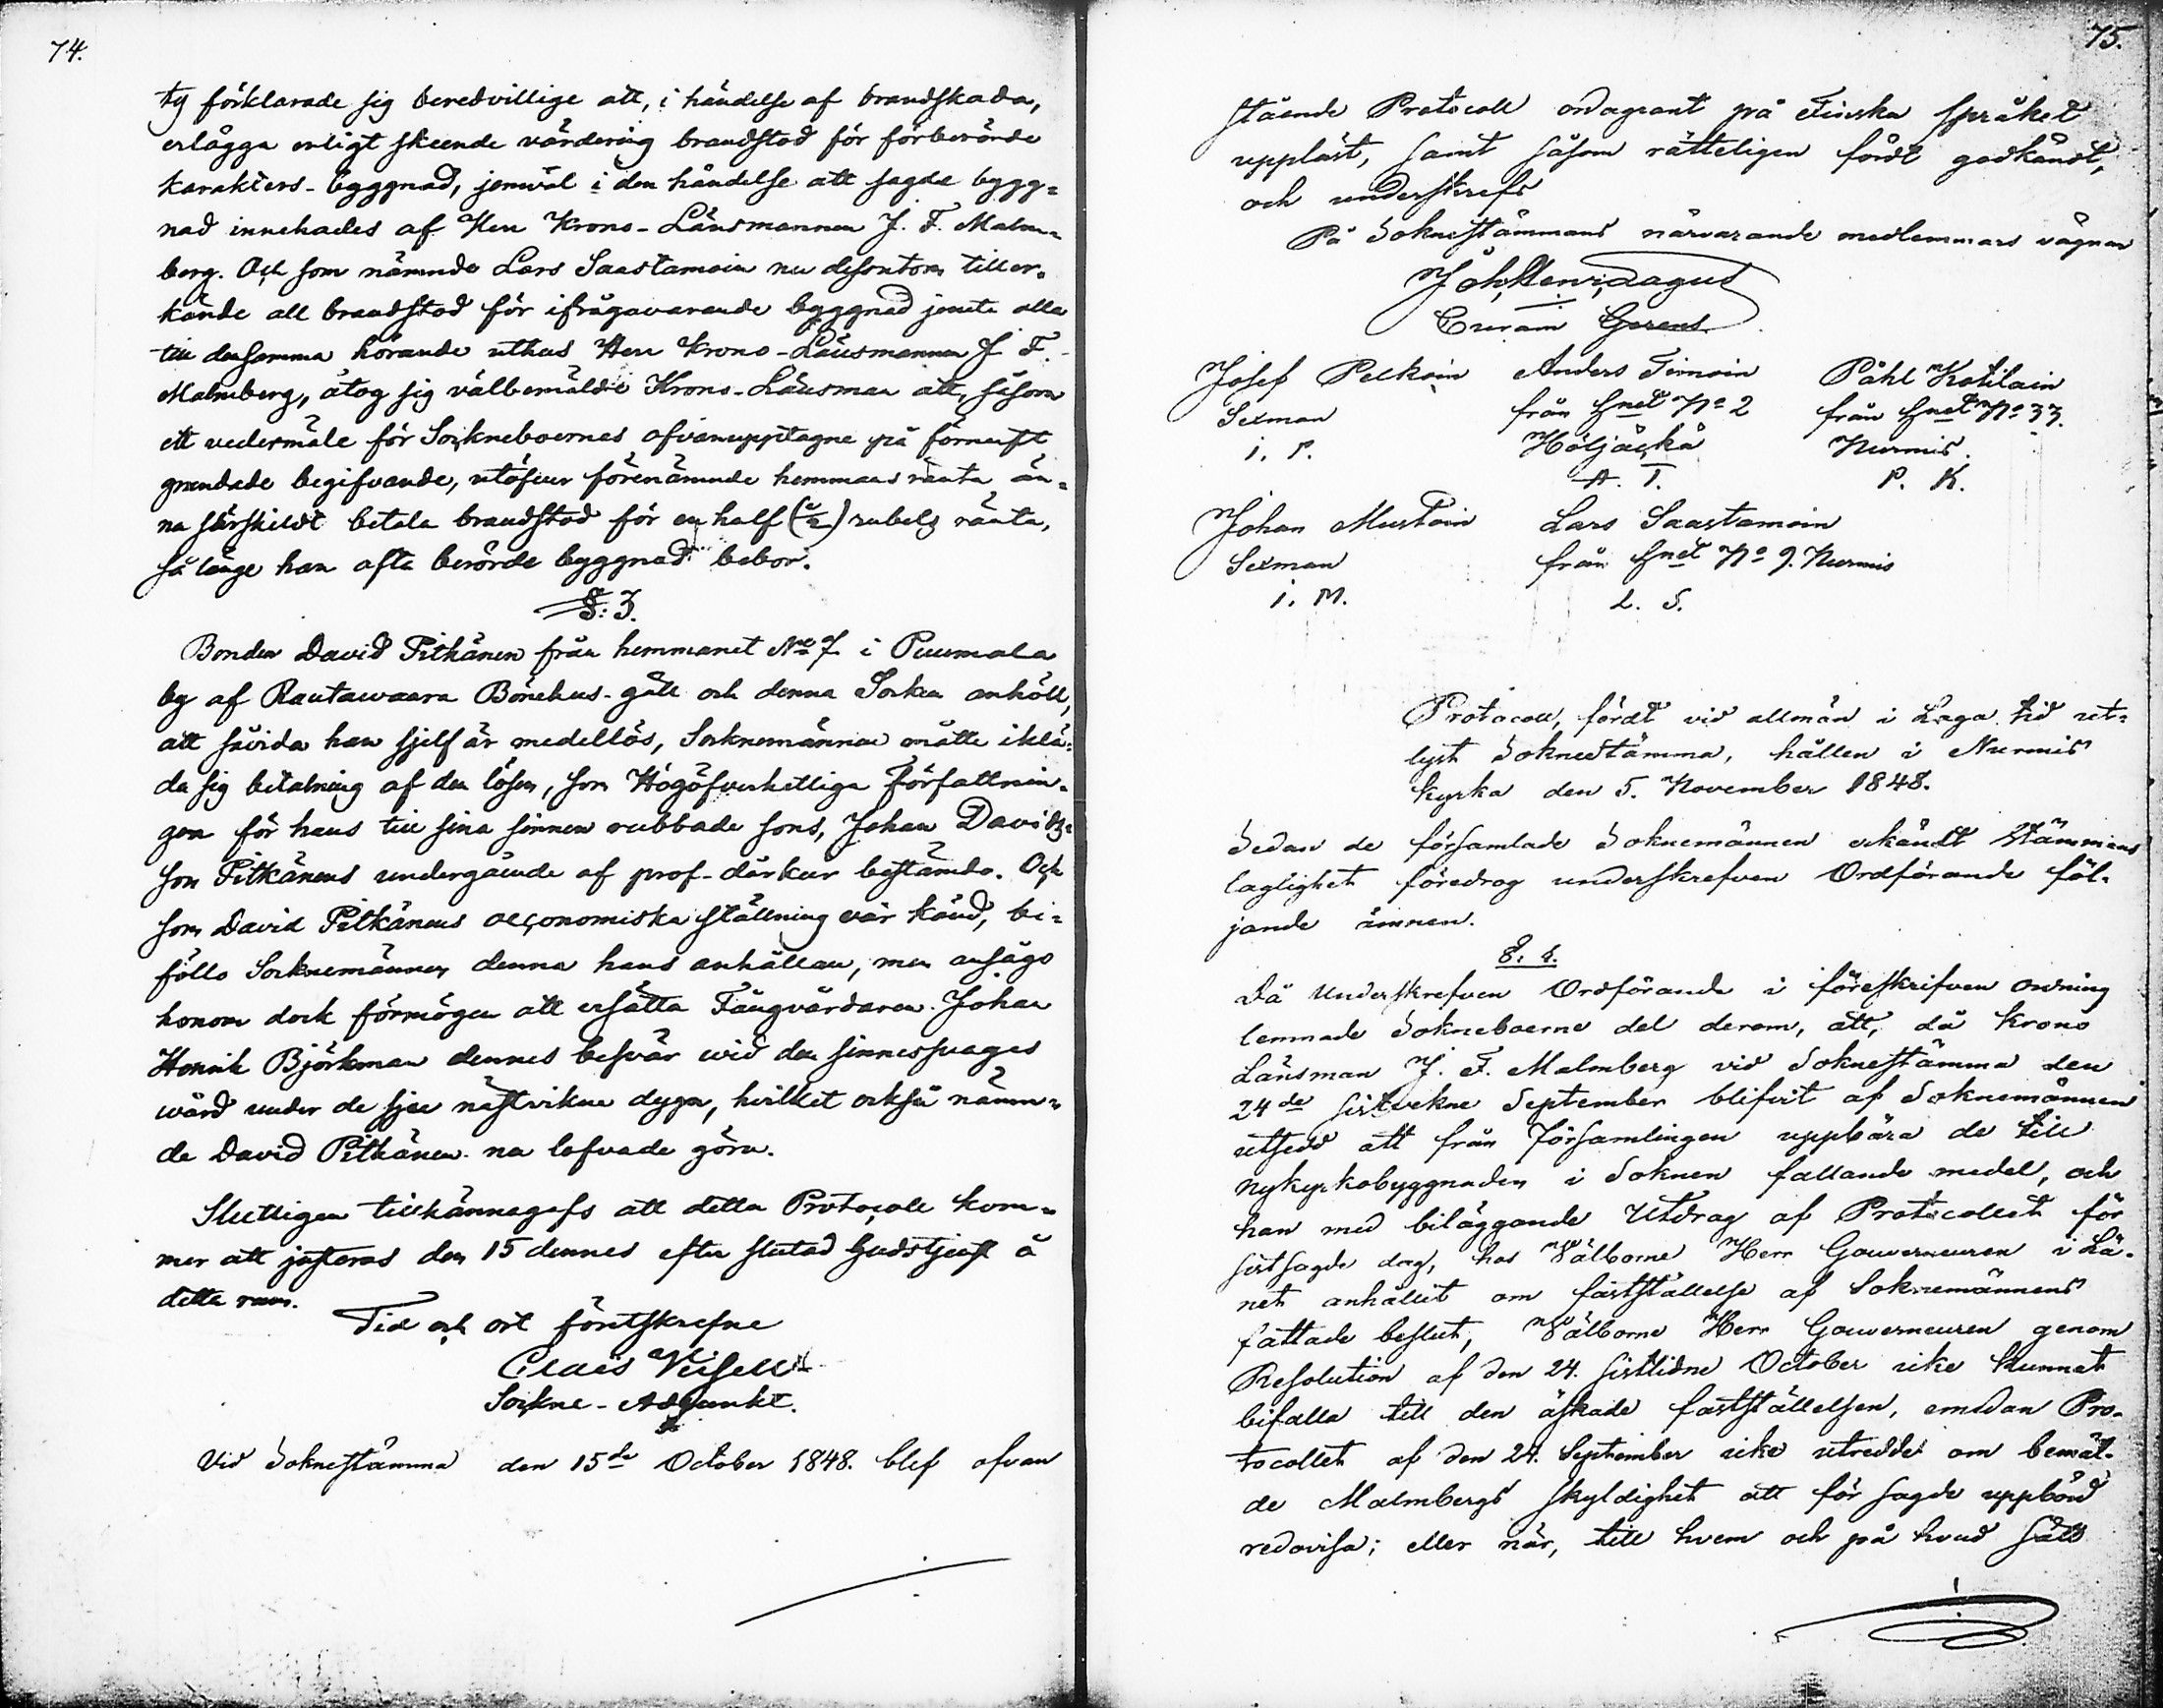 74.
ty förklarade sig beredvillige att, i händelse af brandskada,
erlägga enligt skeende värdering brandstod för förberörde
karakters-byggnad, jemväl i den händelse att sagde bygg=
nad innehades af Herr Krono-Länsmannen J. F. Malm=
berg. Och som nämnde Lars Saastamoin nu dessutom tiller=
kände all brandstod för ifrågavarande byggnad jemte alla
till densamma hörande uthus Herr Krono-Länsmannen J. F.
Malmberg, åtog sig välbemälde Krono-Länsman att, såsom
ett vedermäle för Sockneboernes ofvanupptagne på förnuft
grundade begifvande, utöfver förenämnde hemmans ränta än=
na särskildt betala brandstod för en half (1/2) rubels ränta,
så länge han ofta berörde byggnad bebor.
§: 3.
Bonden David Pitkänen från hemmanet No 7 i Puumala
by af Rautawaara Bönehus-gäll och denna Socken anhöll,
att såvida han sjelf är medellös, Socknemännen måtte iklä=
da sig betalning af den lösen, som Högöfverhetliga författnin=
gen för hans till sina sinnen rubbade sons, Johan Davids=
son Pitkänens undergående af prof-dårkur bestämda. Och
som David Pitkänens oeconomiska ställning var känd, bi=
föllo Socknemännen denna hans anhållan, men ansågo
honom dock förmögen att ersätta Fångvårdaren Johan
Henrik Björkman dennes besvär wid den sinnessvages
wård under de sju nästvikne dygn, hvilket också nämn=
de David Pitkänen na lofvade göra.
Slutligen tillkännagafs att detta Protocoll kom=
mer att justeras den 15 dennes efter slutad Gudstjenst å
detta rum.
Tid och ort förutskrefne
Claës
Sockne-Adjunkt.
Vid Sokneftämma den 15de October 1848. blef ofvan
75.
stående Protocoll ordagrant på Finska språket
uppläst, samt såsom rätteligen fördt godkändt,
och underskrefs
På Soknestämmans närvarande medlemmars vägnar
Joh, Henr, Lagus
Curam Gerens
Josef Pelkoin Anders Timoin Påhl Kotilain
Sexman från Hnet No 2 från Hnet No 33.
i. P. Höljäckä Nurmis.
A. T. P. K.
Johan Mustoin Lars Saastamoin
Sexman från Hnet No 9. Nurmis
i. M. L. S.
Protocoll, fördt vid allmän i Laga tid ut=
lyst Soknestämma, hållen i Nurmis
kyrka den 5. November 1848.
Sedan de församlade Soknemännen erkändt Stämmans
laglighet föredrog underskrefven Ordförande föl=
jande ämnen.
§. 1.
Då Underskrefven Ordförande i föreskrifven ordning
lemnade Sokneboerne del derom, att, då Krono
Länsman J. F. Malmberg vid Soknestämma den
24de sistvekne September blifvit af Soknemännen
utsedd att från församlingen uppbära de till
nykyrkobyggnaden i Soknen fallande medel, och
han med biläggande Utdrag af Protocollet för
sistsagde dag, hos Välborne Herr Gouverneuren i Lä=
net anhållit om fastställelse af Soknemännens
fattade beslut, Välborne Herr Gouverneuren genom
Resolution af den 24. sistlidne October icke kunnat
bifalla till den äskade fastställelsen, emedan Pro=
tocollet af den 24. September icke utredde om bemäl=
de Malmbergs skyldighet att för sagde uppbörd
redovisa; eller när, till hvem och på hvad sätt